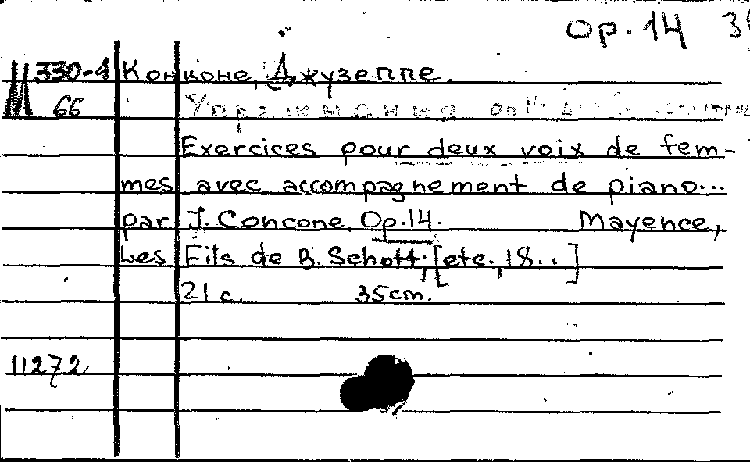 Op. 14
M 330-4 Конконе, Джузеппе.
66 Упражнения
Exercices pour deux voix de fem-
mes avec accompagnement de piano...
par J. Concone. Op. 14. Mayence,
Les Fils de B. Schott. [etc. 18..]
21 c. 35cm.
11272